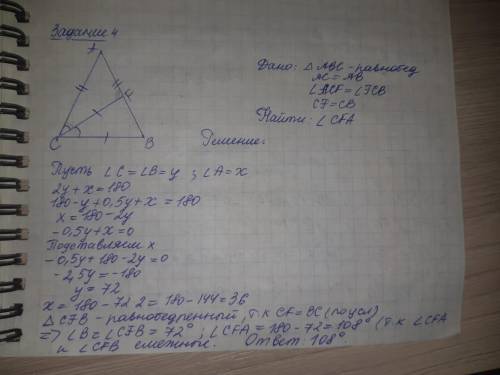 Задание 4
A
F
C
B
Дано: △ABC - равнобед
AC = AB
∠ACF = ∠FCB
CF = CB
Найти: ∠CFA
Решение:
Пусть ∠C = ∠B = y ; ∠A = x
2y + x = 180
180 - y + 0,5y + x = 180
x = 180 - 2y
-0,5y + x = 0
Подставляем x
-0,5y + 180 - 2y = 0
-2,5y = -180
y = 72
x = 180 - 72·2 = 180 - 144 = 36
△CFB - равнобедренный, т.к CF = BC (по усл)
=> ∠B = ∠CFB = 72° ; ∠CFA = 180 - 72 = 108° (т.к ∠CFA
и ∠CFB смежной. Ответ: 108°